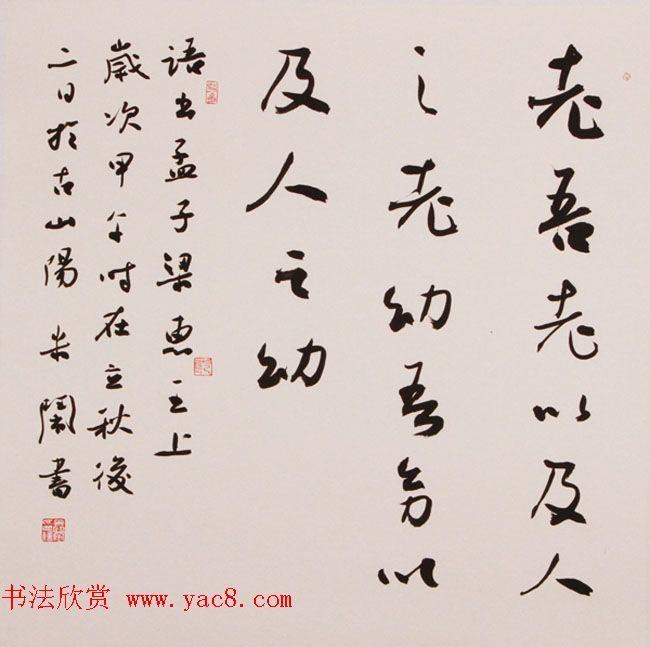 老吾老以及人
之老幼吾幼以
及人之幼
語出孟子梁惠王上
歲次甲午時在立秋後
二日於古山陽 米鬧書
书法欣赏 www.yac8.com